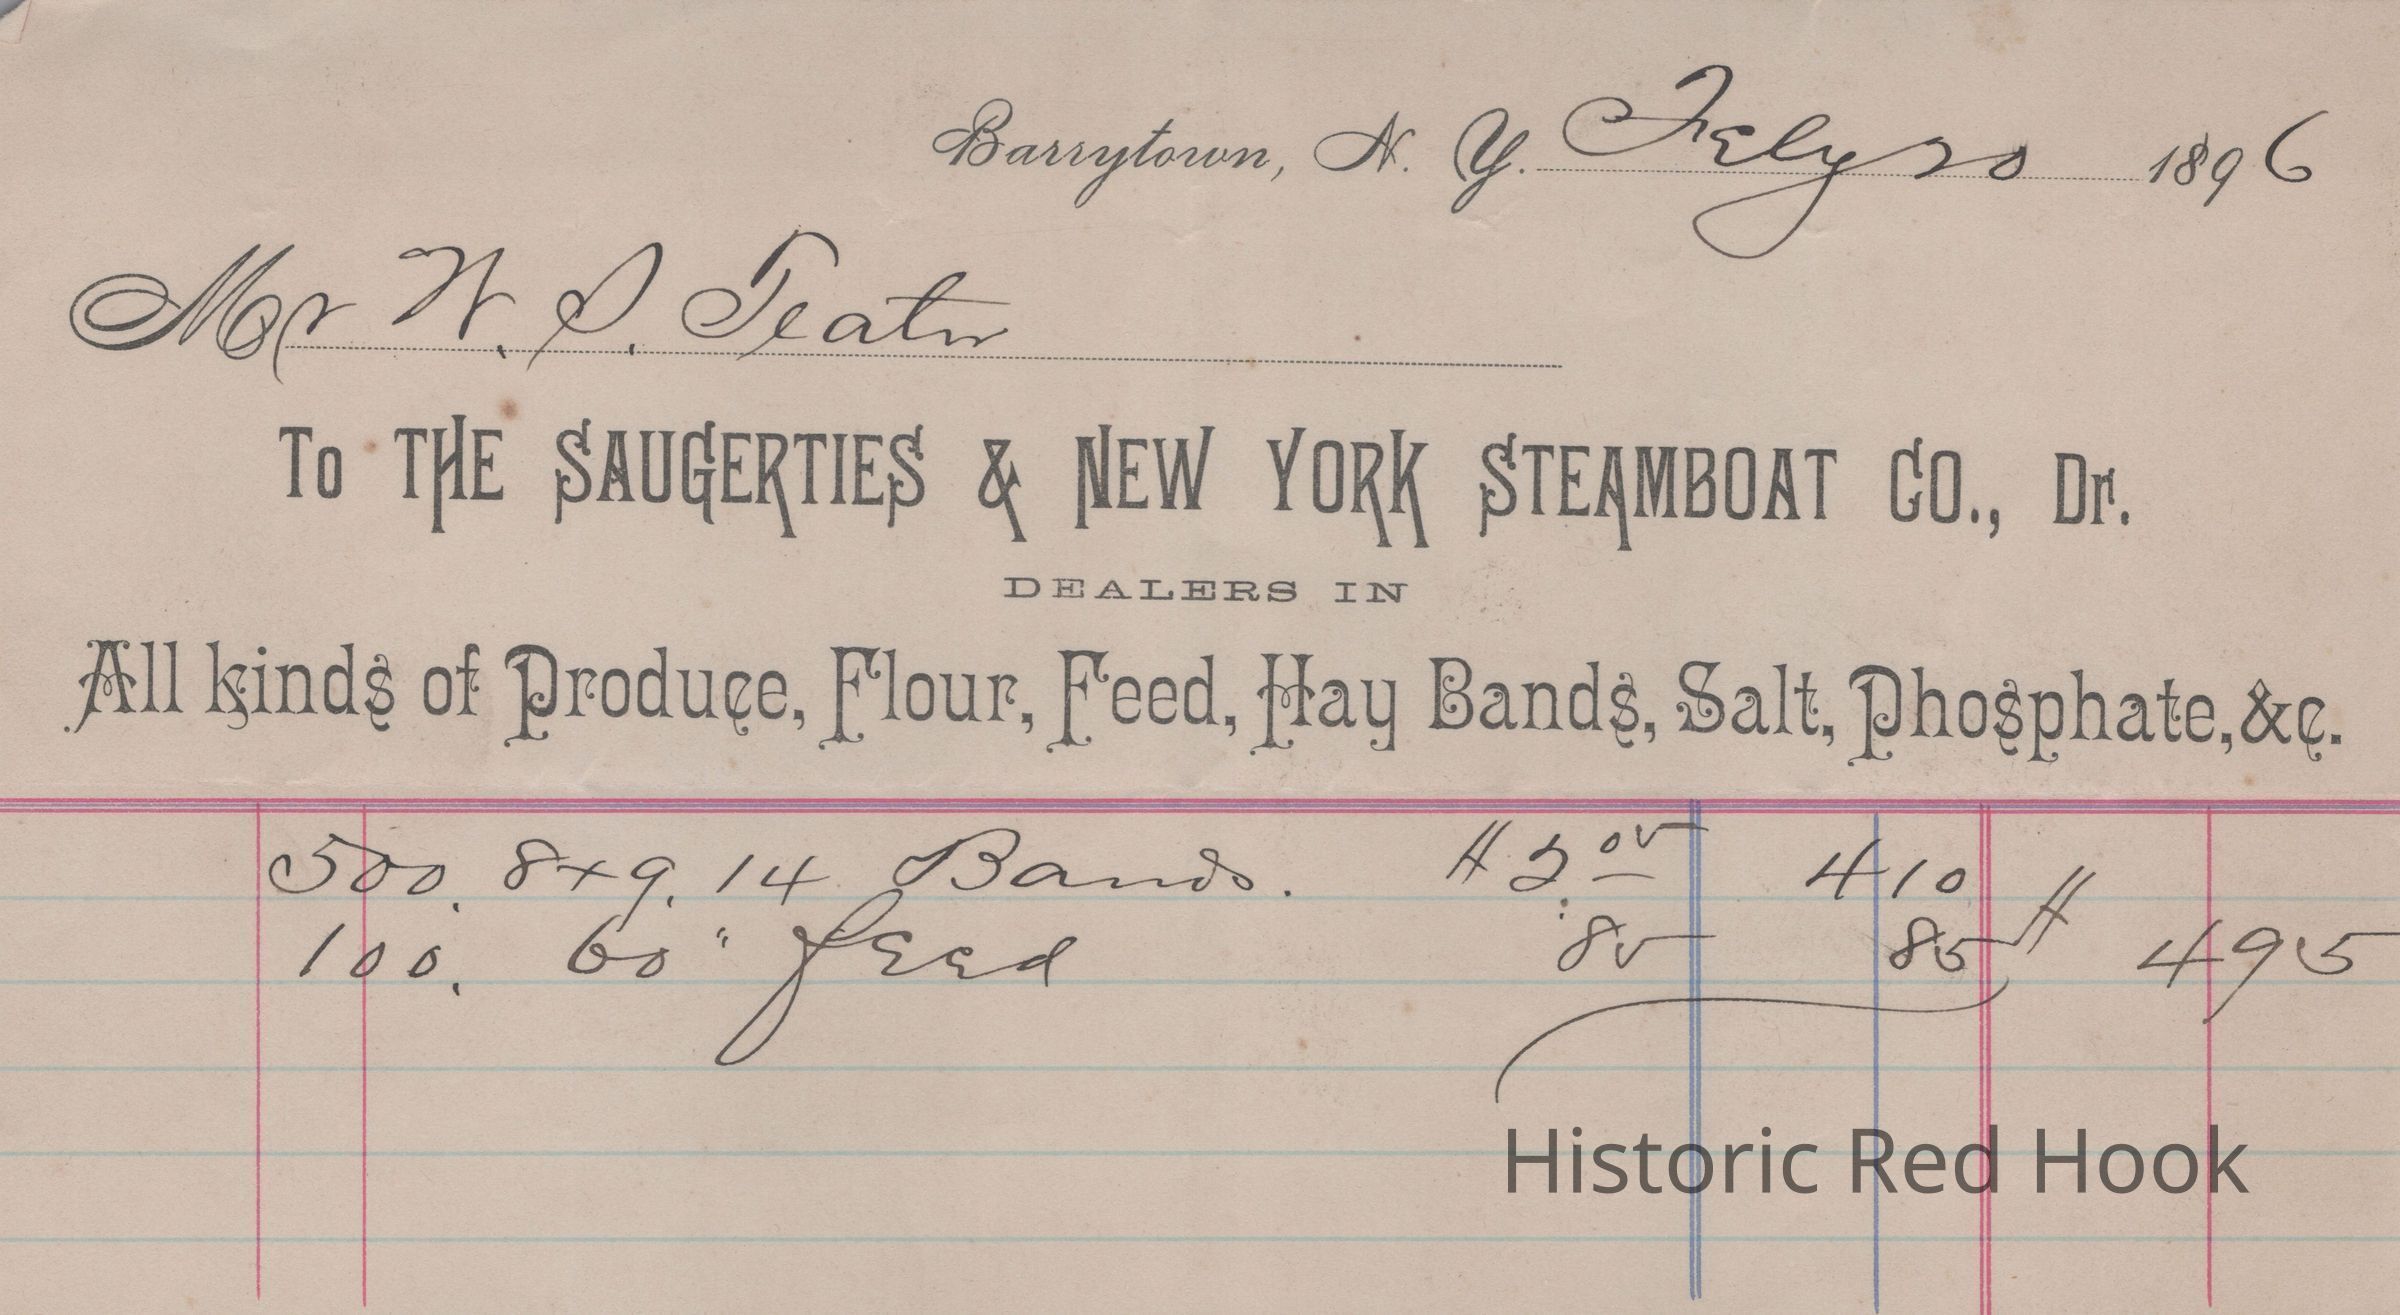 Barrytown, N. Y. Feby 20 1896
Mr W. S. Teator
To THE SAUGERTIES & NEW YORK STEAMBOAT CO., Dr.
DEALERS IN
All kinds of Produce, Flour, Feed, Hay Bands, Salt, Phosphate, &c.
500. 8x9. 14 Bands. # 2 05 4 10
100. 60 " feed 85 85 # 4 95
Historic Red Hook